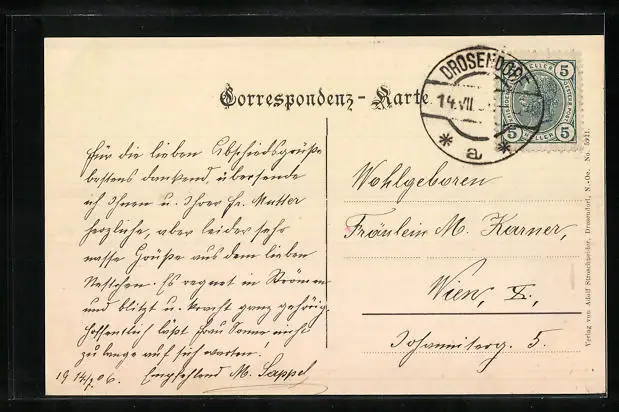 Correspondenz-Karte.
DROSENDORF
14.VII
* a *
5 5
5 5
HELLER
Für die lieben Abschiedsgrüße
bestens dankend, übersende
ich Ihnen u. Ihrer Fr. Mutter
herzliche, aber leider sehr
nasse Grüße aus dem lieben
Nestchen. Es regnet in Strömen
und blitzt u. kracht ganz gehörig.
Hoffentlich läßt Frau Sonne nicht
zu lange auf sich warten!
19 14/7. 06. Empfehlend M. Sappel
Wohlgeboren
Fräulein M. Karner,
Wien, X.,
Johanniterg. 5.
Verlag von Adolf Stroschneider, Drosendorf, N.-Oe. No. 5921.